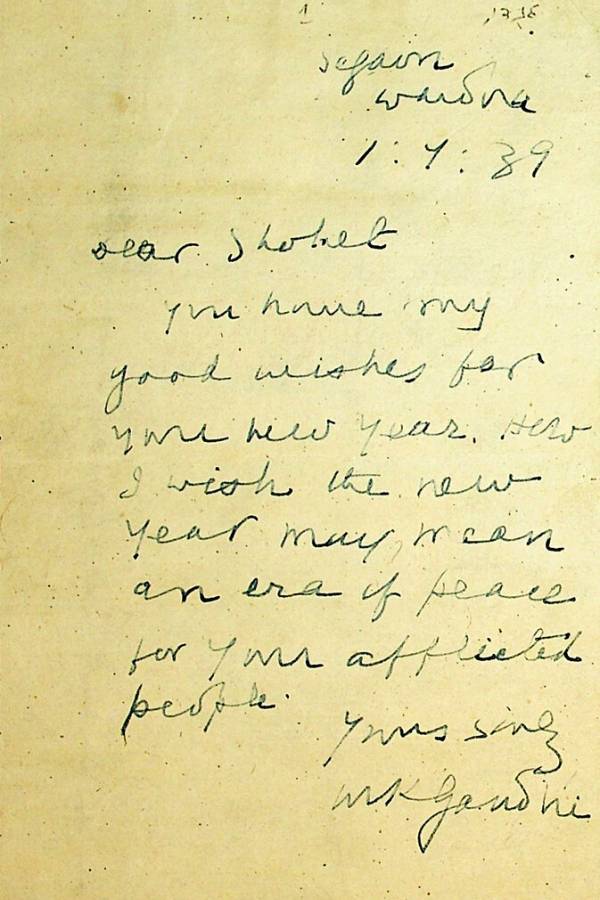 1
1736
Segaon
Wardha
1:9:39
Dear Shohet
You have my
good wishes for
your new year. How
I wish the new
year may mean
an era of peace
for your afflicted
people.
Yours sincly
MKGandhi